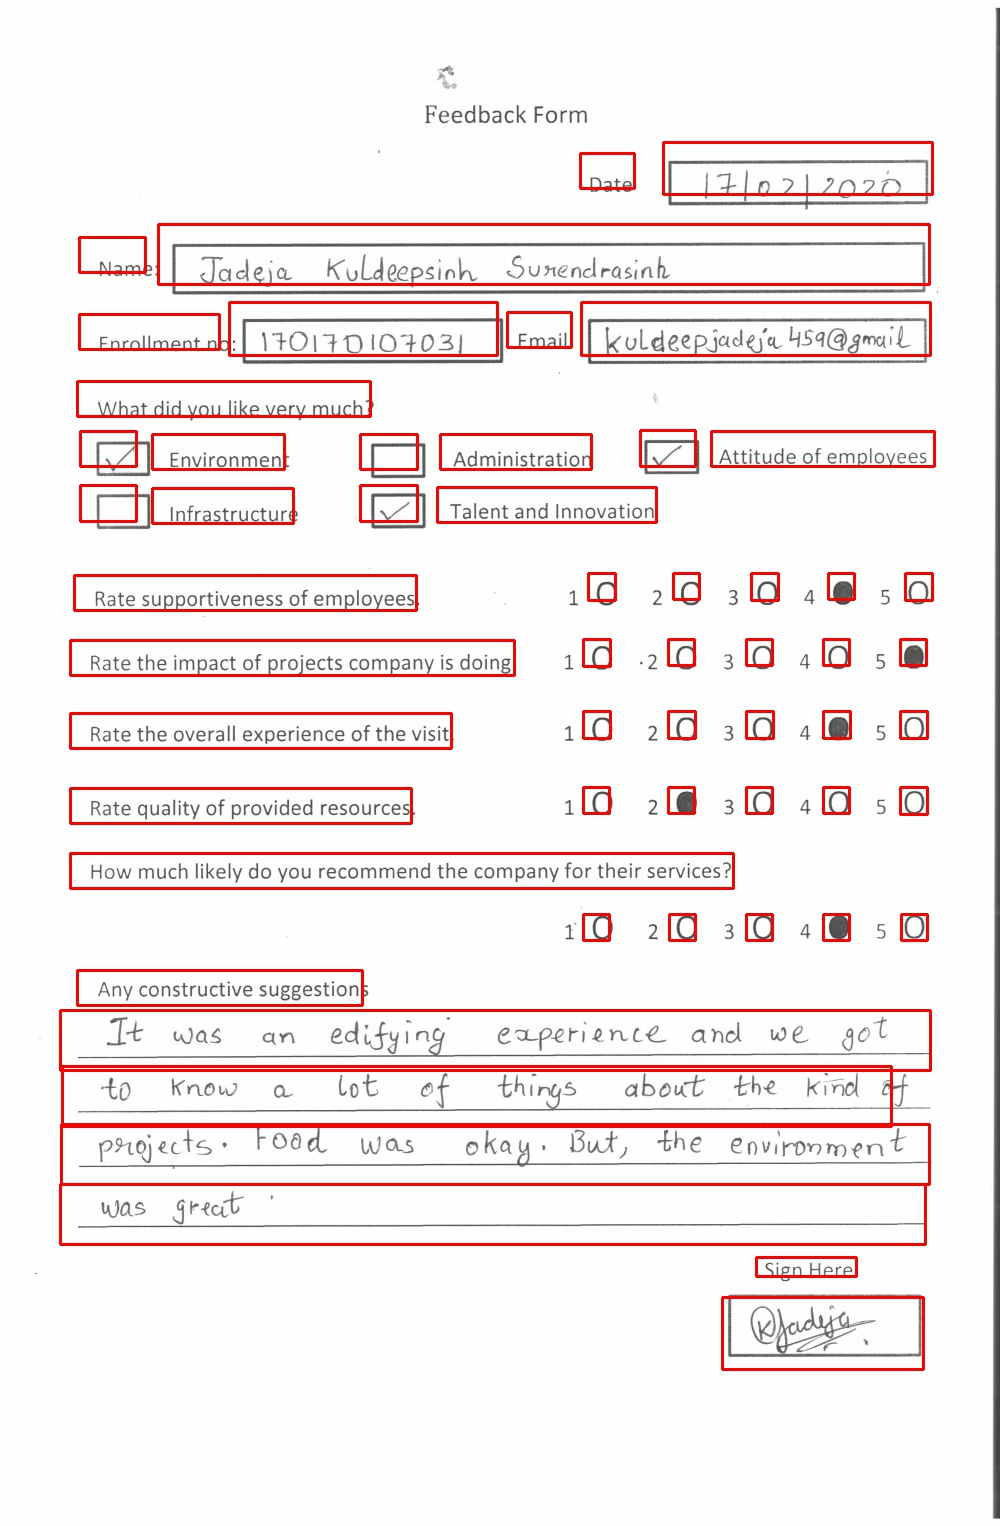 Feedback Form
Date 17/02/2020
Name: Jadeja Kuldeepsinh Surendrasinh
Enrollment no: 170170107031 Email kuldeepjadeja459@gmail
What did you like very much?
Environment Administration Attitude of employees
Infrastructure Talent and Innovation
Rate supportiveness of employees. 1 2 3 4 5
Rate the impact of projects company is doing 1 2 3 4 5
Rate the overall experience of the visit. 1 2 3 4 5
Rate quality of provided resources. 1 2 3 4 5
How much likely do you recommend the company for their services?
1 2 3 4 5
Any constructive suggestions
It was an edifying experience and we got
to know a lot of things about the kind of
projects. Food was okay. But, the environment
was great.
Sign Here
K Jadeja